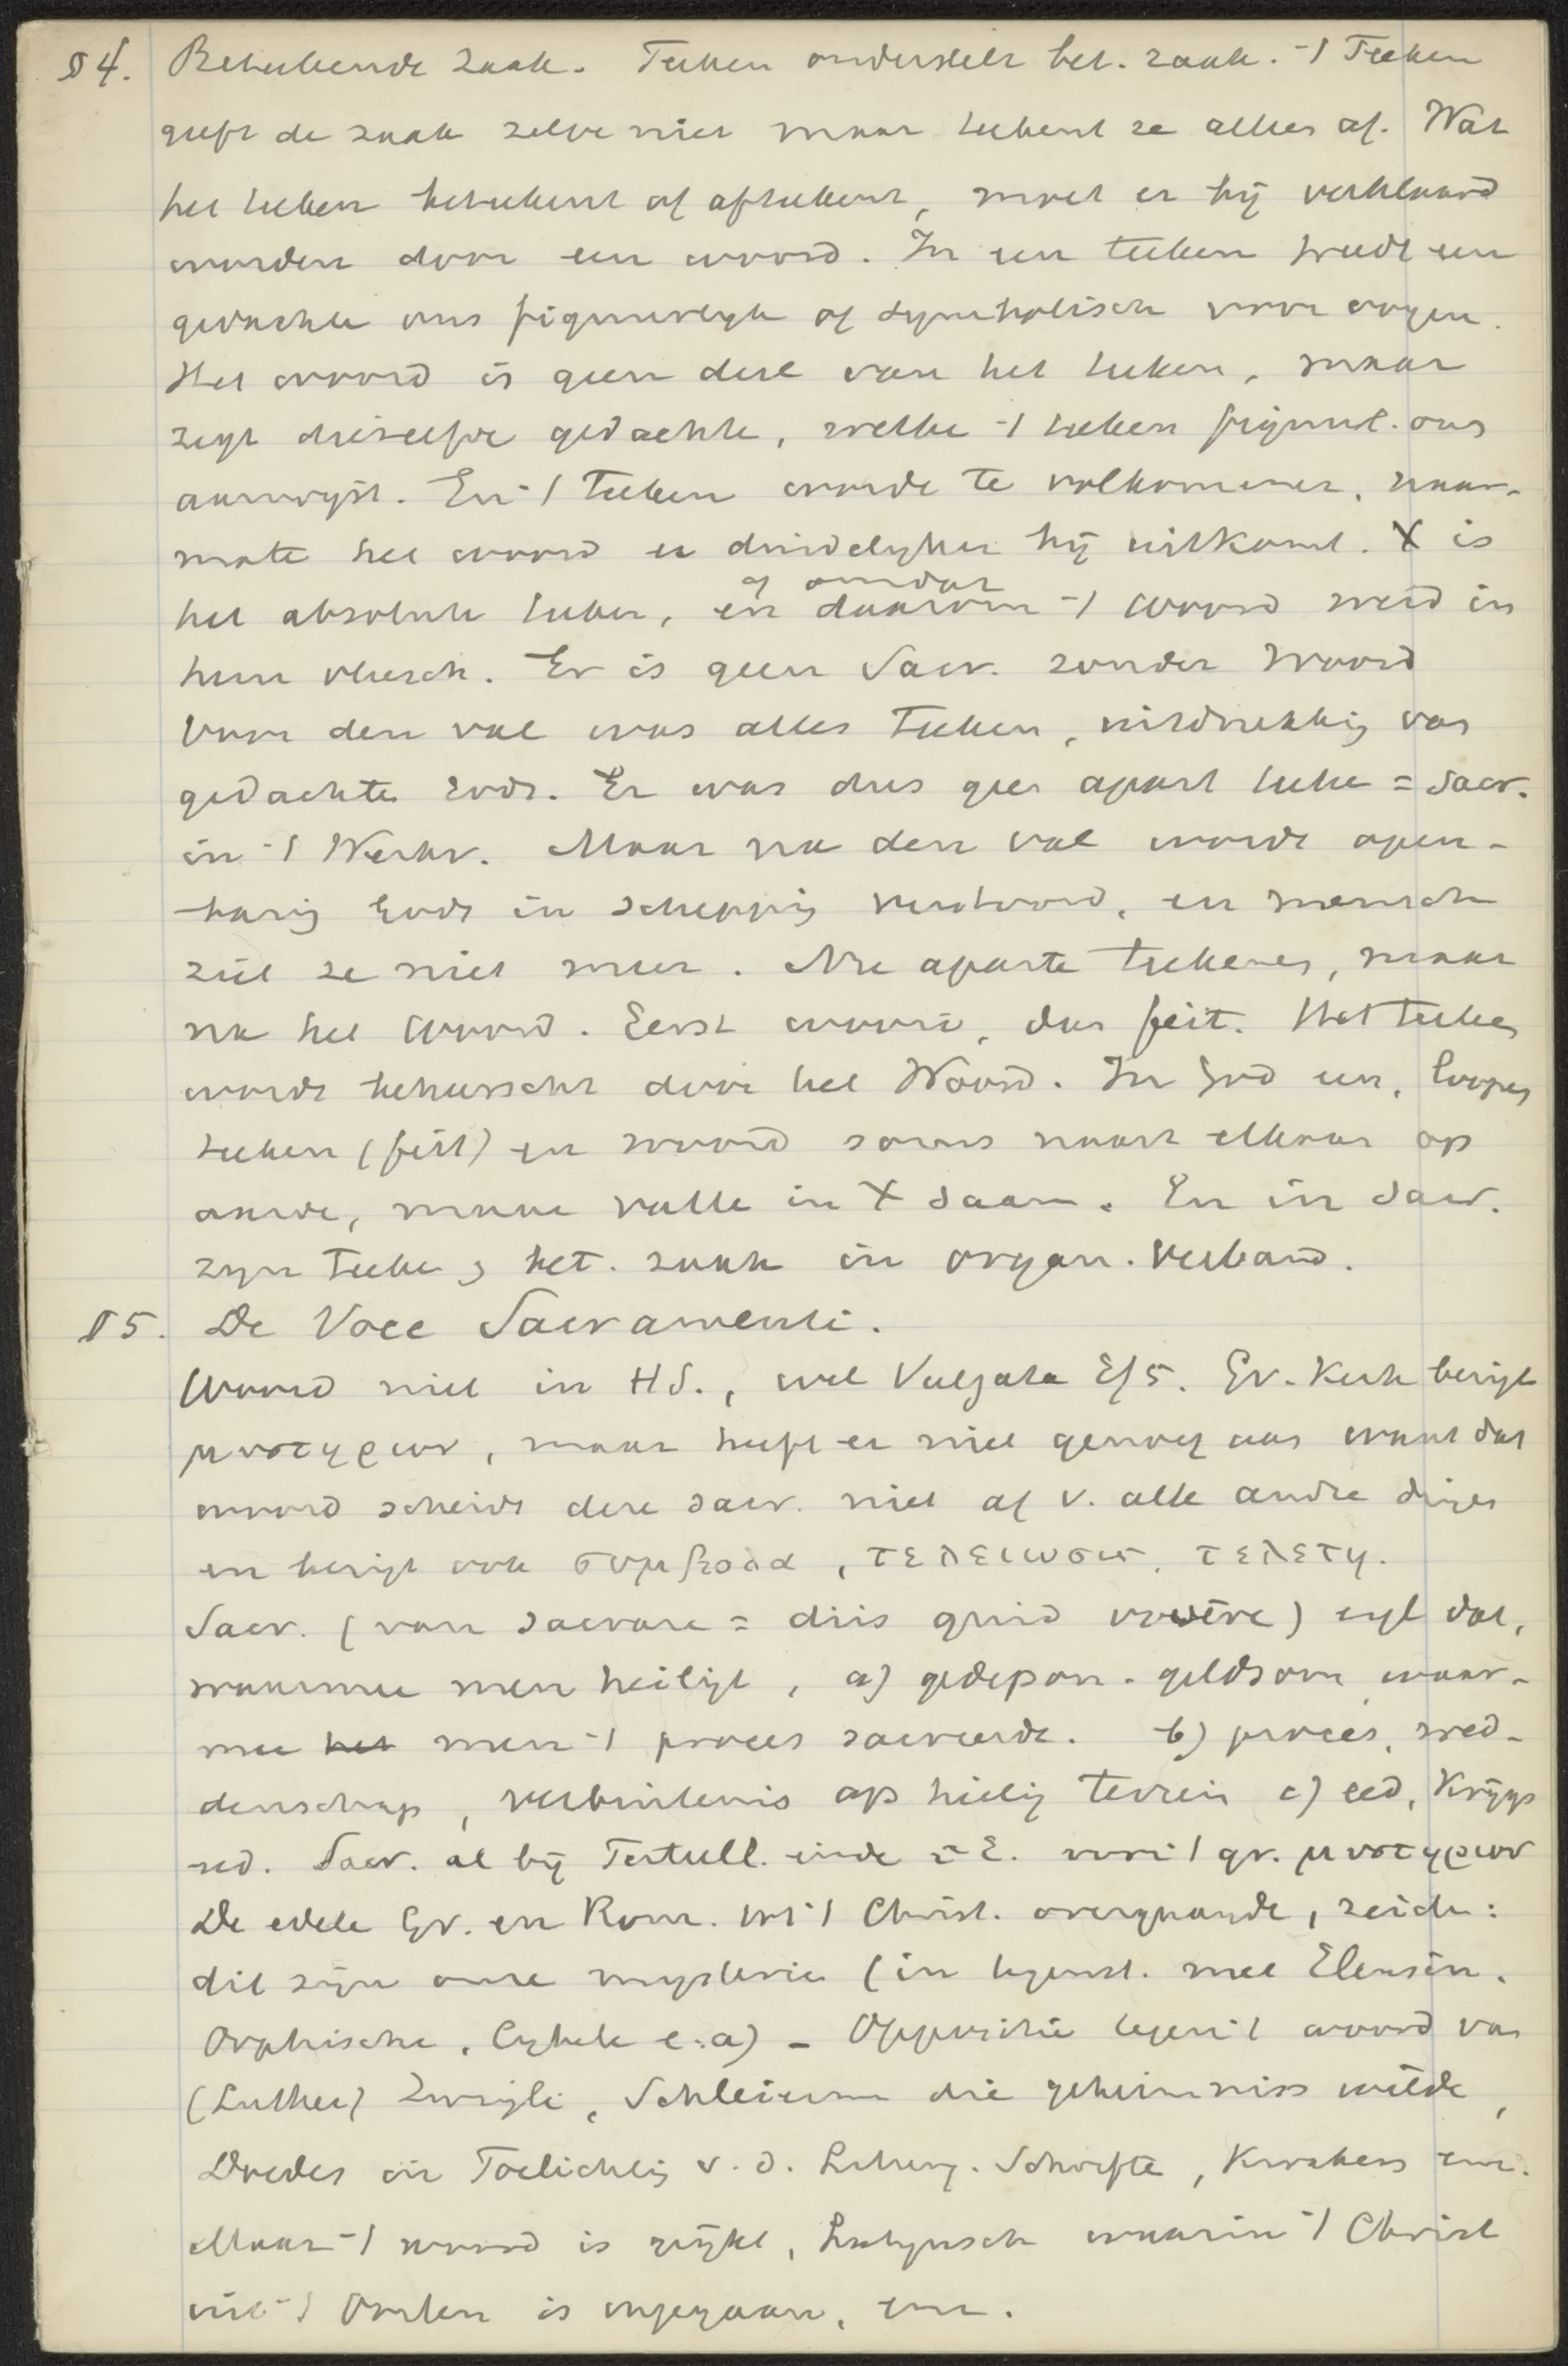 § 4. Beteekende zaak. Teeken onderstelt bet. zaak. 't Teeken
geeft de zaak zelve niet maar teekent ze alleen af. Wat
het teeken beteekent of afteekent, moet er bij verklaard
worden door een woord. In een teeken treedt een
gedachte ons figuurlyk of symbolisch voor oogen.
Het woord is geen deel van het teeken, maar
zegt diezelfde gedachte, welke 't teeken figuurl. ons
aanwyst. En 't teeken wordt te volkomener, naar-
mate het woord er duidelyker bij uitkomt. X is
het absolute teeken, en daarom of omdat 't Woord werd in
hem vleesch. Er is geen Sacr. zonder Woord
Voor den val was alles teeken, uitdrukking van
gedachte Gods. Er was dus geen apart teeken = Sacr.
in 't Werkv. Maar na den val wordt open-
baring Gods in schepping verstoord, en mensch
ziet ze niet meer. Nu aparte teekenen, maar
na het Woord. Eerst woord, dan feit. Het teeken
wordt beheerscht door het Woord. In loopen
teeken (feit) en woord soms naast elkaar op
aarde, maar valle in X saam. En in Sacr.
zyn teeken & bet. zaak in organ. verband.
§ 5. De Voce Sacramenti.
Woord niet in H.S., wel Vulgata Ef 5. Gr. Kerk bezigt
μυστηριον, maar heeft er niet genoeg aan want dat
woord scheidt deze sacr. niet af v. alle andre dingen
en bezigt ook συμβολα, τελειωσις, τελετη.
Sacr. (van sacrare = diis quid vovēre) zegt dat,
waarmee men heiligt, a) gedepon. geldsom waar-
mee het men 't proces sacreerde. b) proces, wed-
denschap, verbintenis op heilig terrein c) eed, Krijgs
eed. Sacr. al bij Tertull. einde 2e E. voor 't gr. μυστηριον
De edele Gr. en Rom. tot 't Christ. overgaande, zeiden:
dit zijn onze mysterien (in tegenst. met Eleusin.
Orphische, Cybele e.a) - Oppositie tegen 't woord van
(Luther) Zwingli, Schleierm die geheimniss wilde,
Doedes in Toelichting v. d. Schrifte, Kwakers enz.
Maar 't woord is rijker, Latynsch waarin 't Christ
uit 't Oosten is ingegaan, enz.